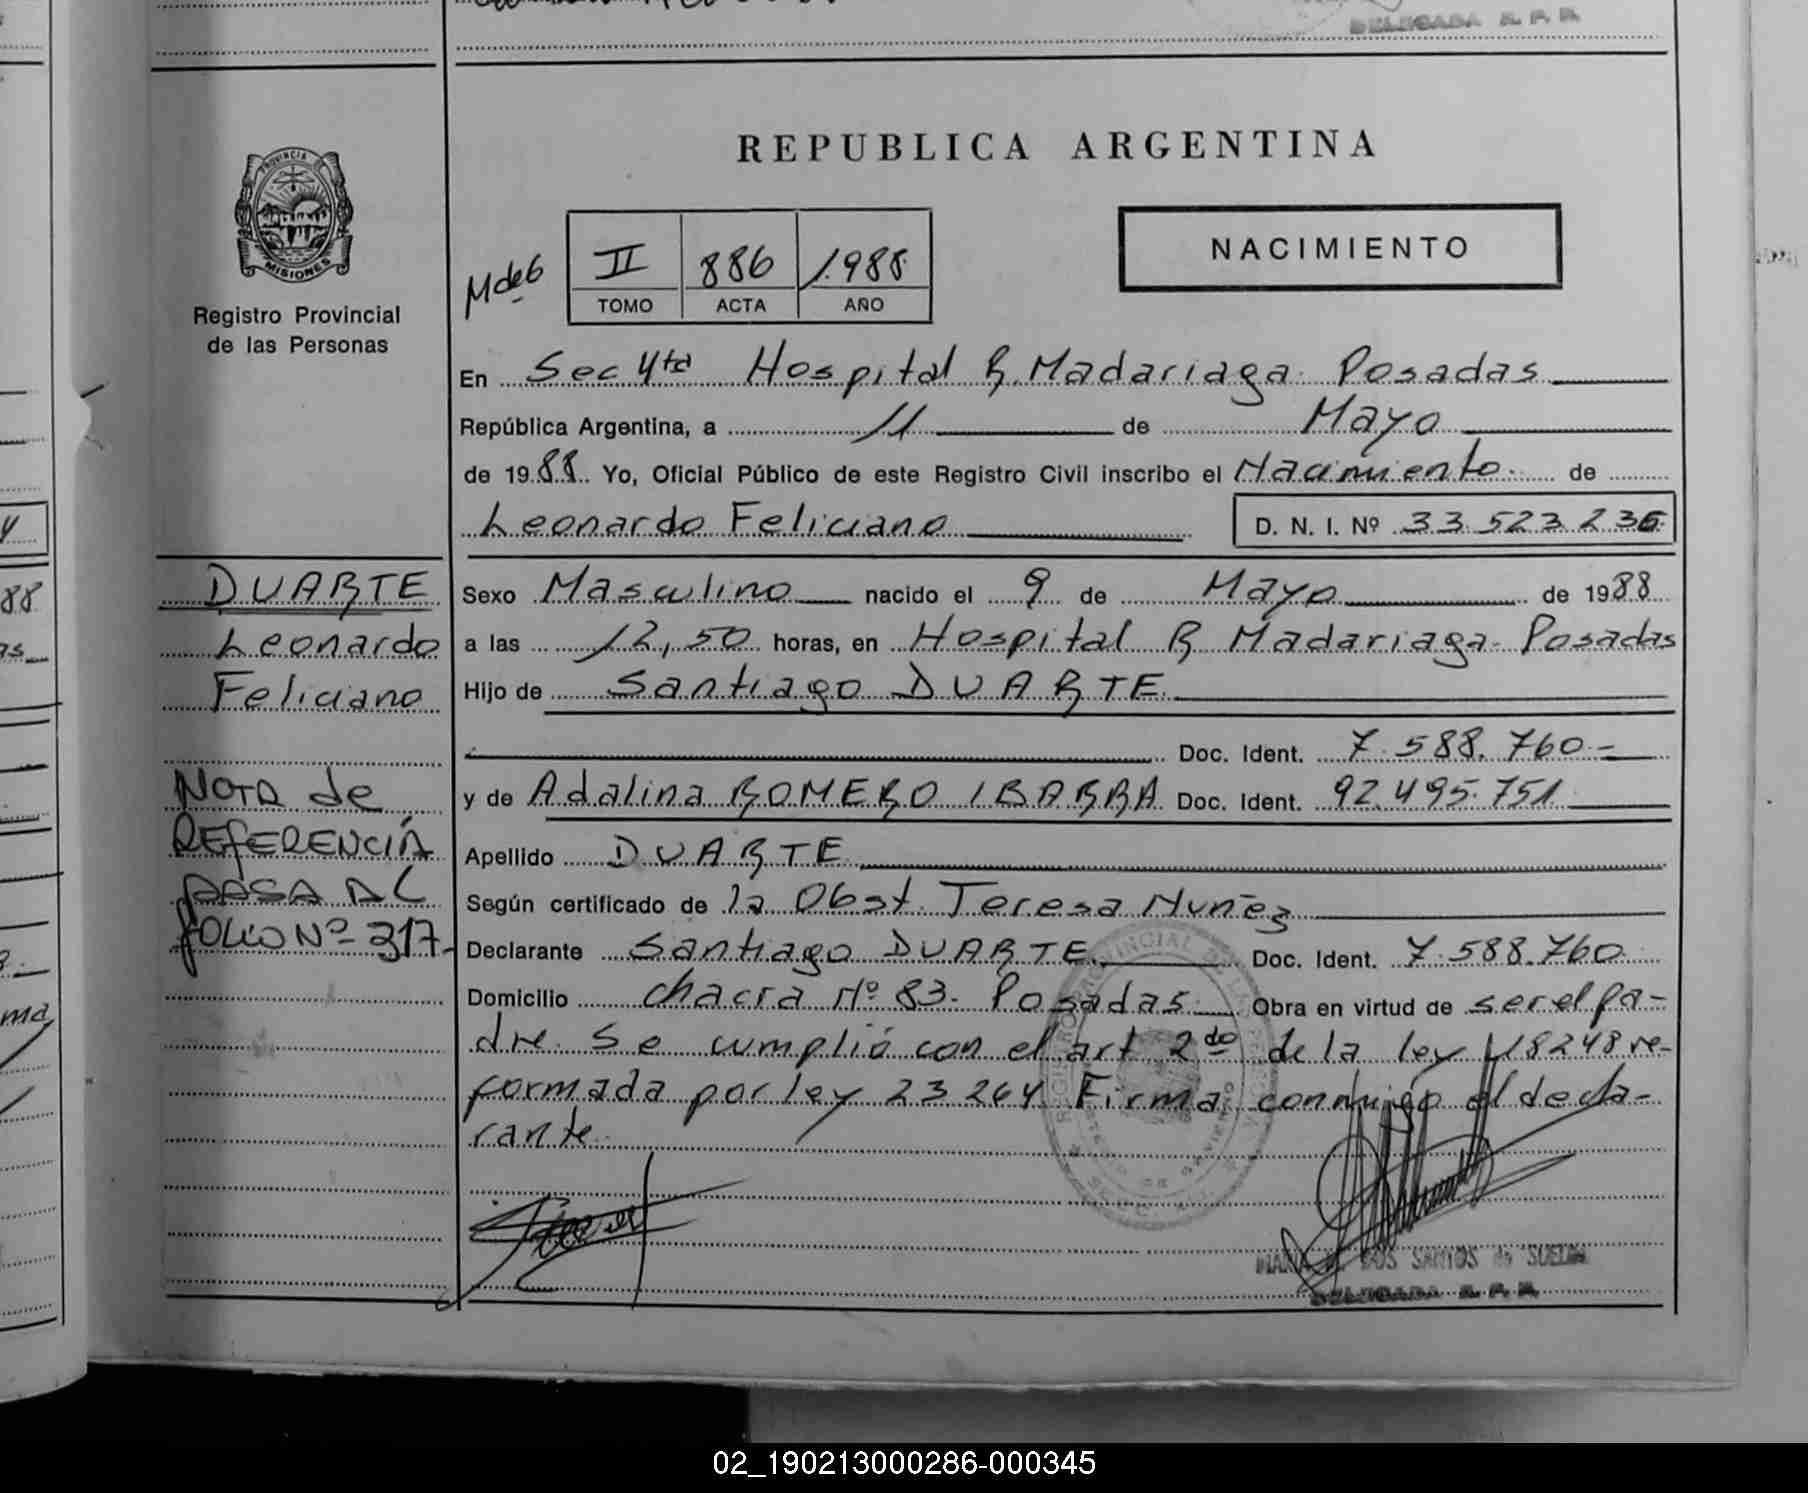 DELEGADA R. P. P.
PROVINCIA DE
MISIONES
Registro Provincial
de las Personas
REPUBLICA ARGENTINA
Mde6
II 886 1988
TOMO ACTA AÑO
NACIMIENTO
En Sec 4ta Hospital R. Madariaga Posadas
República Argentina, a 11 de Mayo
de 1988 Yo, Oficial Público de este Registro Civil inscribo el Nacimiento de
Leonardo Feliciano D. N. I. Nº 33 523 236
DUARTE
Leonardo
Feliciano
Sexo Masculino nacido el 9 de Mayo de 1988
a las 12,50 horas, en Hospital R Madariaga - Posadas
Hijo de Santiago DUARTE
Doc. Ident. 7.588.760.-
y de Adalina ROMERO IBARRA Doc. Ident. 92.495.751
NOTA de
REFERENCIA
PASA AL
FOLIO Nº 317.-
Apellido DUARTE
Según certificado de la Obst. Teresa Nuñez
Declarante Santiago DUARTE Doc. Ident. 7.588.760
Domicilio chacra Nº 83. Posadas Obra en virtud de ser el pa-
dre. Se cumplió con el art 2do de la ley 18248 re-
formada por ley 23 264 Firma conmigo el decla-
rante.
DOS SANTOS de
DELEGADA R. P. P.
02_190213000286-000345